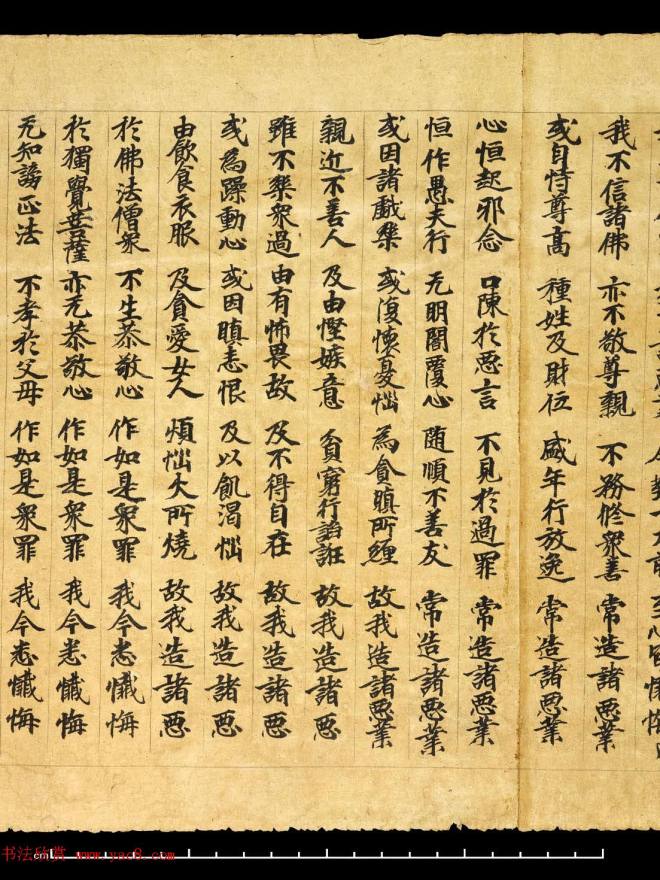 我不信諸佛　亦不敬尊親　不務修衆善　常造諸惡業
或自恃尊高　種姓及財位　盛年行放逸　常造諸惡業
心恒起邪念　口陳於惡言　不見於過罪　常造諸惡業
恒作愚夫行　无明闇覆心　随順不善友　常造諸惡業
或因諸戲樂　或復懷憂惱　為貪瞋所纏　故我造諸惡業
親近不善人　及由慳嫉意　貧窮行諂誑　故我造諸惡
雖不樂衆過　由有怖畏故　及不得自在　故我造諸惡
或為躁動心　或因瞋恚恨　及以飢渴惱　故我造諸惡
由飲食衣服　及貪愛女人　煩惱火所燒　故我造諸惡
於佛法僧衆　不生恭敬心　作如是衆罪　我今悉懺悔
於獨覺菩薩　亦无恭敬心　作如是衆罪　我今悉懺悔
无知謗正法　不孝於父母　作如是衆罪　我今悉懺悔
书法欣赏 www.yac8.com
cm